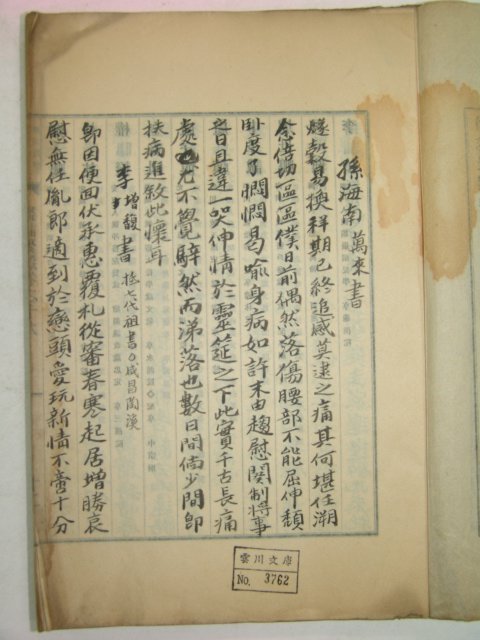 孫海南萬來書
燧穀易換祥期已終追感莫逮之痛其何堪任溯
念倍切區區僕日前偶然落傷腰部不能屈伸頹
臥度了憫憫曷喩身病如許末由趨慰闋制將事
音且違一哭伸情於靈筵之下此實千古長痛
處也尤不覺騂然而涕落也數日間倘少間卽
扶病進敘此懷耳
李增馥書 族七代祖書 咸昌陶漢
卽因便面伏承惠覆札從審春寒起居增勝哀
慰無任胤郎適到於戀頭愛玩新情不啻十分
雲川文庫
No. 3762